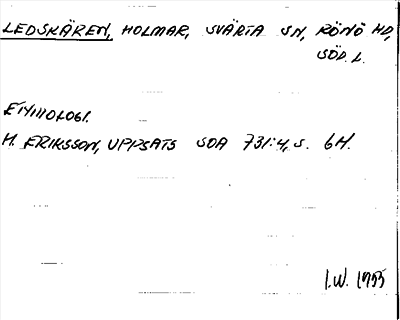 LEDSKÄREN, HOLMAR, SVÄRTA SN, RÖNÖ HD,
SÖD. L.
ETYMOLOGI.
H. ERIKSSON, UPPSATS SOA 731:4, S. 64.
I.W. 1955